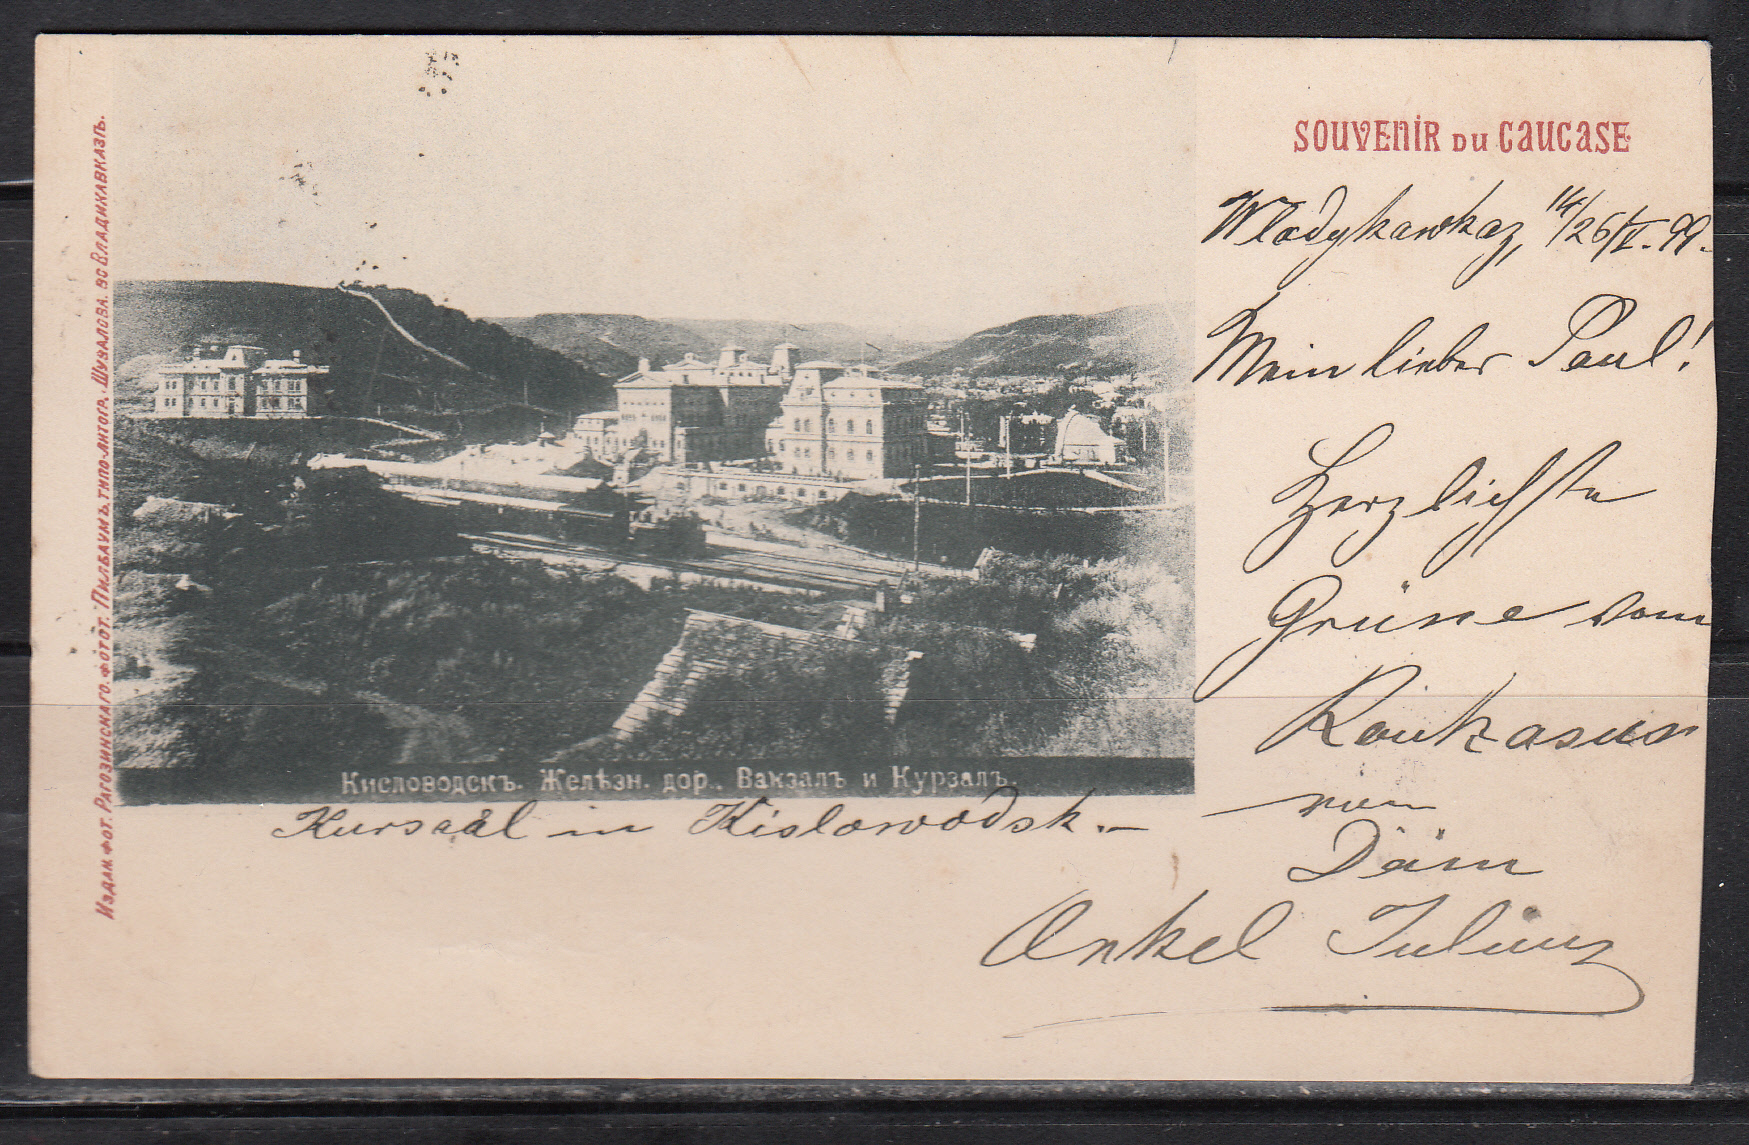 SOUVENIR DU CAUCASE
Wladykawkaz, 14/26/V. 99.
Mein lieber Paul!
Herzlichste
Grüsse vom
Kaukasus
von
Dein
Onkel Julius
Кисловодскъ. Желѣзн. дор. Вакзалъ и Курзалъ.
Kursaal in Kislowodsk. –
Издан. фот. Рагозинскаго. Фотот. Пильбаумъ. Типо-литогр. Шувалова. во Владикавказѣ.